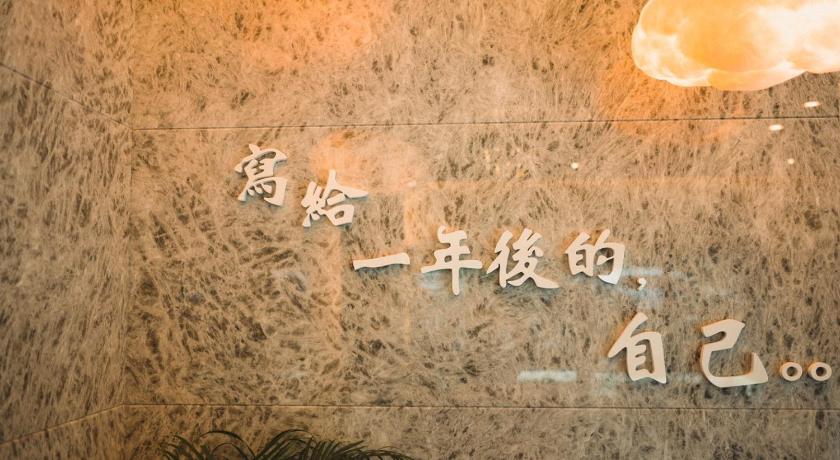 寫給
一年後的,
自己。。